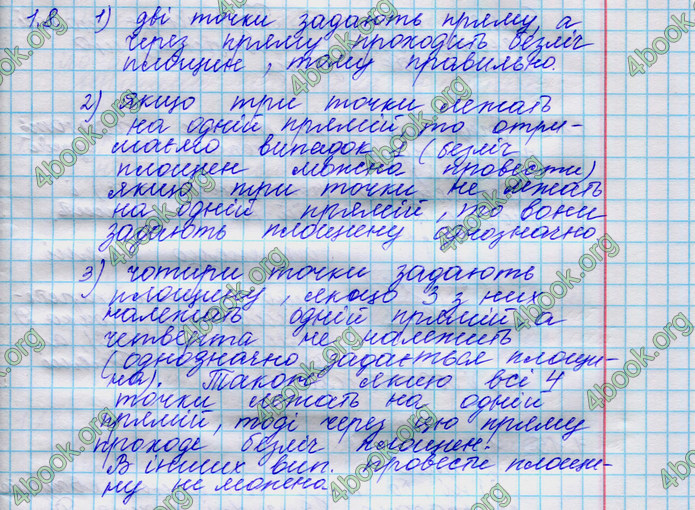 1.8. 1) дві точки задають пряму, а
через пряму проходить безліч
площин, тому правильно.
2) Якщо три точки лежать
на одній прямій то отри-
маємо випадок 1 (безліч
площин можна провести)
якщо три точки не лежать
на одній прямій, то вони
задають площину однозначно
3) Чотири точки задають
площину, якщо 3 з них
належать одній прямій, а
четверта не належить
(однозначно задається площи-
на). Також якщо всі 4
точки лежать на одній
прямій, тоді через цю пряму
проходе безліч площин.
В інших вип. провести площи-
ну не можна
4book.org